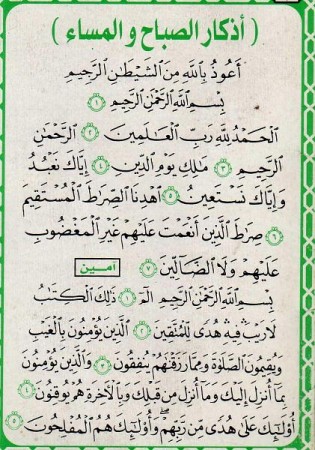 ( أذكار الصباح و المساء )
أَعُوذُ بِاللَّهِ مِنَ الشَّيْطَٰنِ الرَّجِيمِ
بِسْمِ اللَّهِ الرَّحْمَٰنِ الرَّحِيمِ ١
الْحَمْدُ لِلَّهِ رَبِّ الْعَٰلَمِينَ ٢ الرَّحْمَٰنِ
الرَّحِيمِ ٣ مَٰلِكِ يَوْمِ الدِّينِ ٤ إِيَّاكَ نَعْبُدُ
وَإِيَّاكَ نَسْتَعِينُ ٥ اهْدِنَا الصِّرَٰطَ الْمُسْتَقِيمَ
٦ صِرَٰطَ الَّذِينَ أَنْعَمْتَ عَلَيْهِمْ غَيْرِ الْمَغْضُوبِ
عَلَيْهِمْ وَلَا الضَّالِّينَ ٧ آمين
بِسْمِ اللَّهِ الرَّحْمَٰنِ الرَّحِيمِ الٓمٓ ١ ذَٰلِكَ الْكِتَٰبُ
لَا رَيْبَ فِيهِ هُدًى لِلْمُتَّقِينَ ٢ الَّذِينَ يُؤْمِنُونَ بِالْغَيْبِ
وَيُقِيمُونَ الصَّلَوٰةَ وَمِمَّا رَزَقْنَٰهُمْ يُنفِقُونَ ٣ وَالَّذِينَ يُؤْمِنُونَ
بِمَا أُنزِلَ إِلَيْكَ وَمَا أُنزِلَ مِن قَبْلِكَ وَبِالْآخِرَةِ هُمْ يُوقِنُونَ ٤
أُو۟لَٰٓئِكَ عَلَىٰ هُدًى مِّن رَّبِّهِمْ ۖ وَأُو۟لَٰٓئِكَ هُمُ الْمُفْلِحُونَ ٥